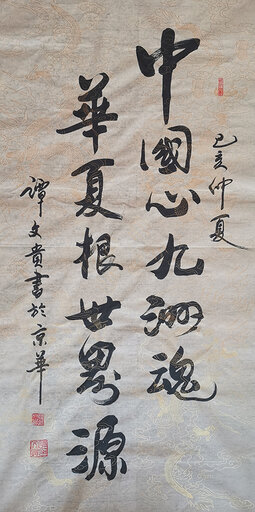 己亥仲夏
中國心九洲魂
華夏根世界源
譚文貴書於京華